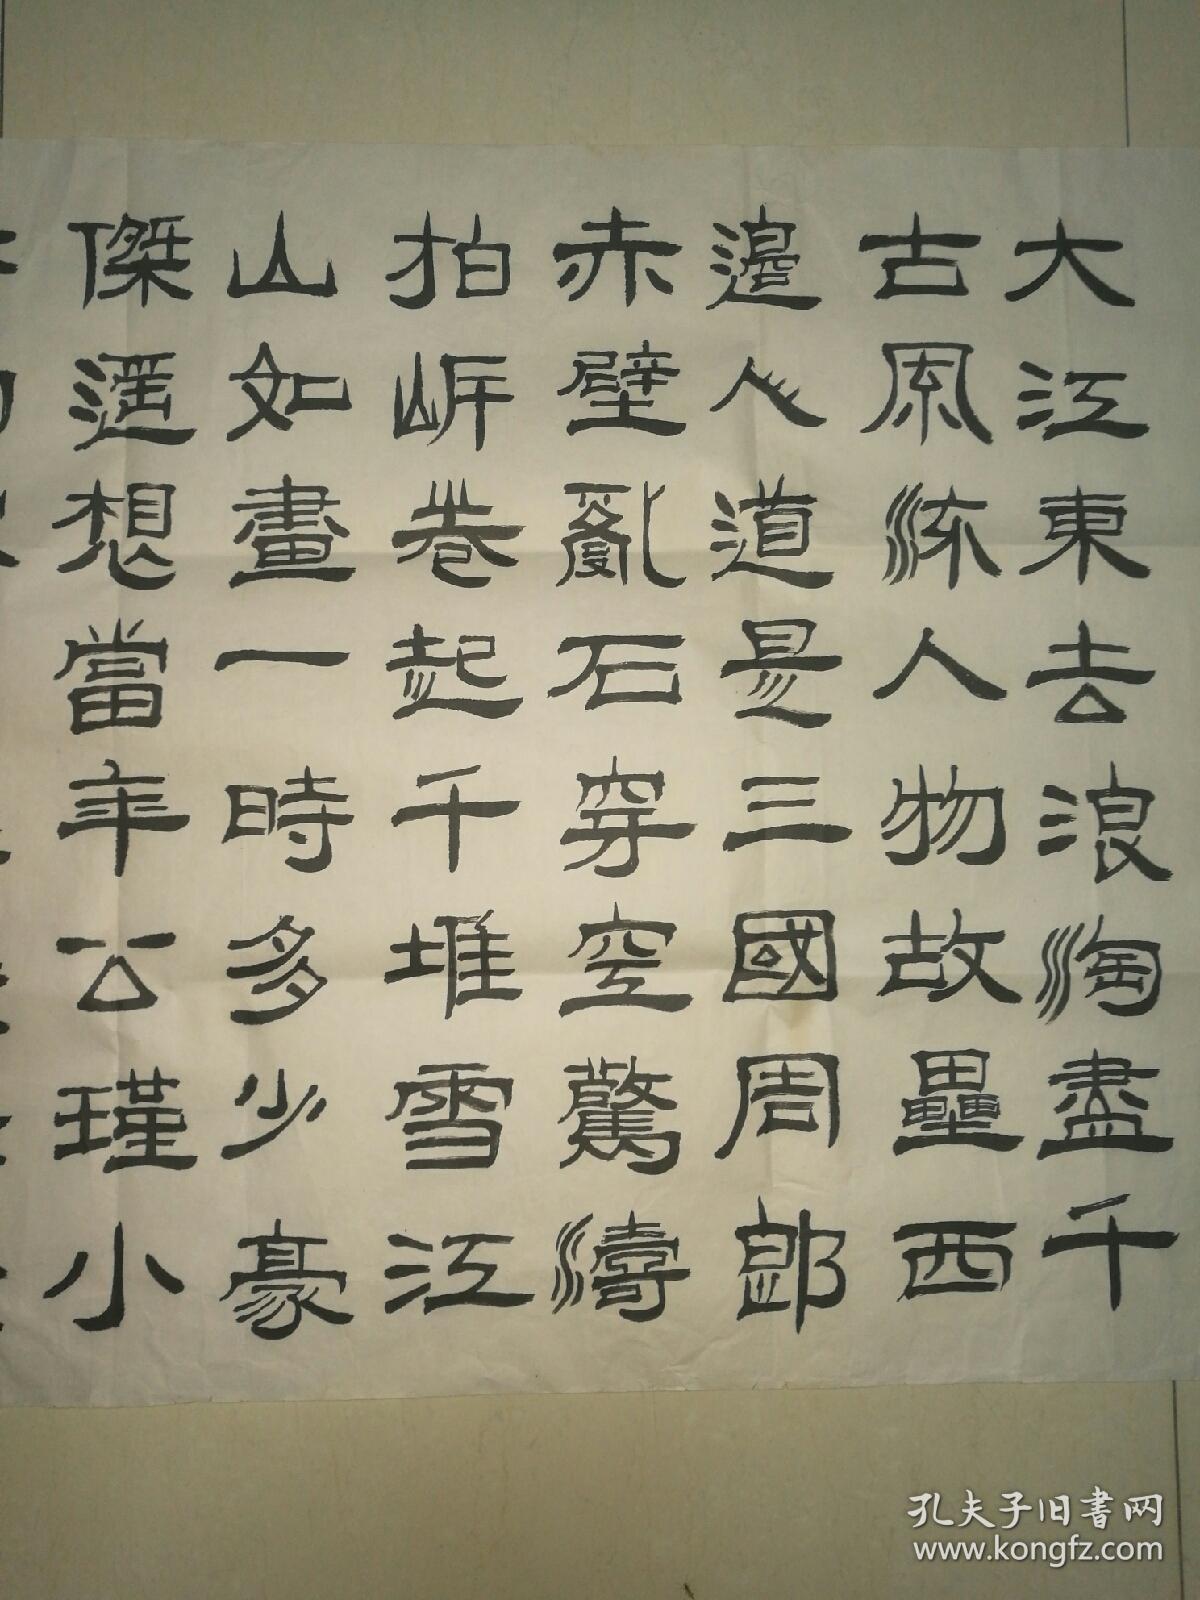 大江東去浪淘盡千
古風流人物故壘西
邊人道是三國周郎
赤壁亂石穿空驚濤
拍岸卷起千堆雪江
山如畫一時多少豪
傑遙想當年公瑾小
孔夫子旧書网
www.kongfz.com